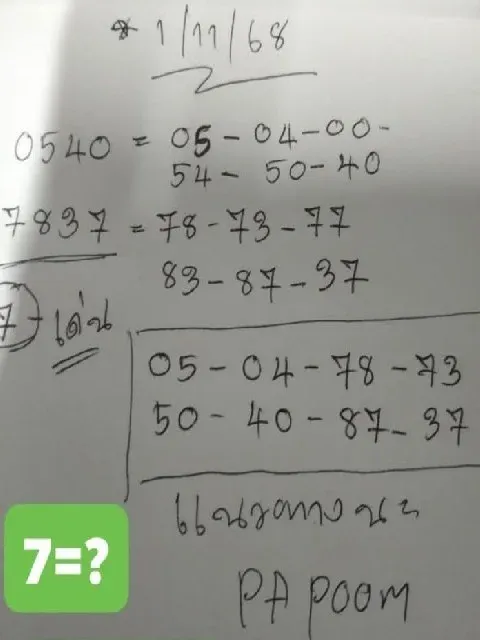 * 1/11/68
0540 = 05 - 04 - 00 -
54 - 50 - 40
7837 = 78 - 73 - 77
83 - 87 - 37
7 - เด่น
05 - 04 - 78 - 73
50 - 40 - 87 - 37
แนวทางนะ
PA POOM
7=?